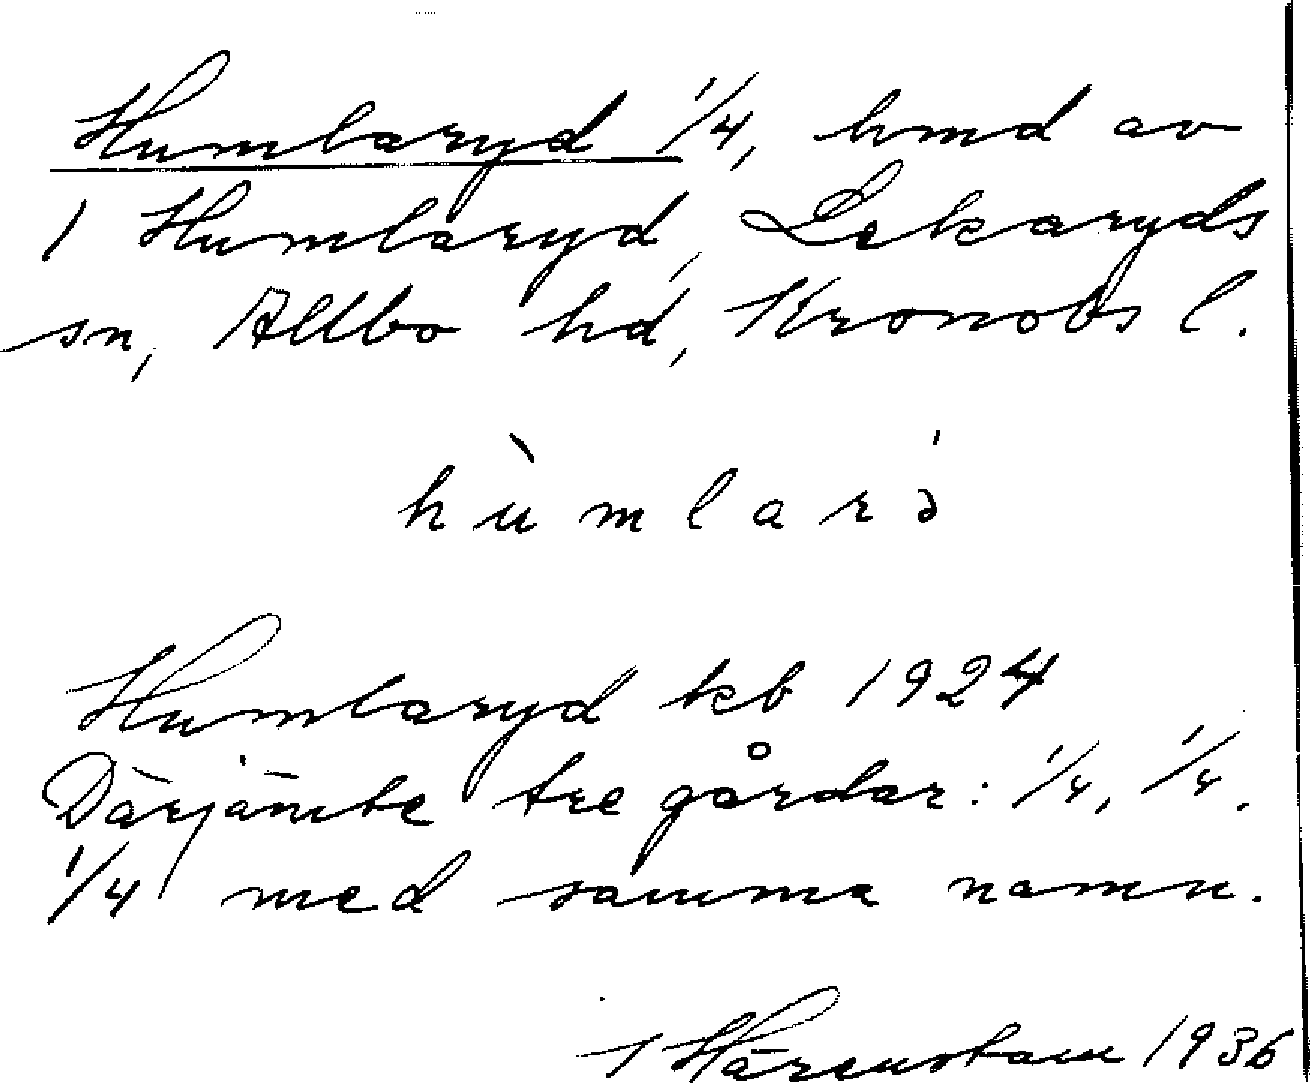 Humlaryd 1/4, hmd av
1 Humlaryd, Lekaryds
sn, Allbo hd, Kronobs l.
hùmlarə̍
Humlaryd kb 1924
Därjämte tre gårdar: 1/4, 1/4,
1/4 med samma namn.
Härenstam 1936